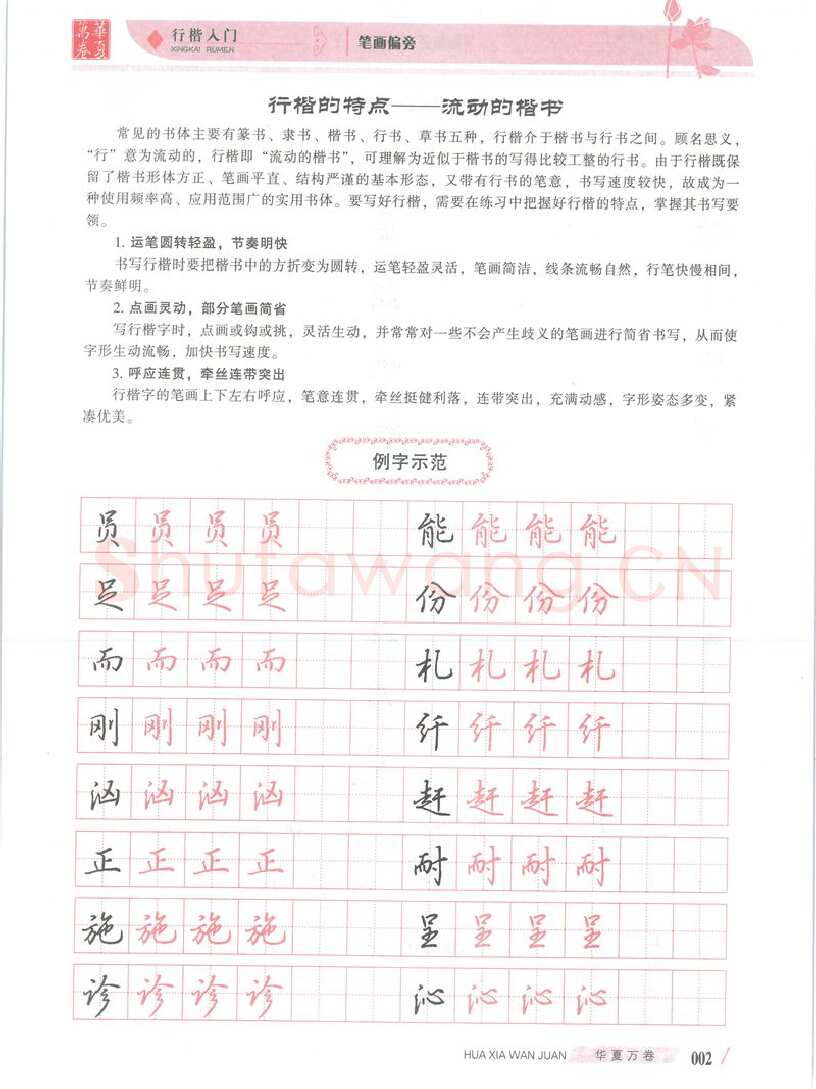 華夏萬卷
行楷入门
XINGKAI RUMEN
笔画偏旁
行楷的特点——流动的楷书
常见的书体主要有篆书、隶书、楷书、行书、草书五种，行楷介于楷书与行书之间。顾名思义，
“行”意为流动的，行楷即“流动的楷书”，可理解为近似于楷书的写得比较工整的行书。由于行楷既保
留了楷书形体方正、笔画平直、结构严谨的基本形态，又带有行书的笔意，书写速度较快，故成为一
种使用频率高、应用范围广的实用书体。要写好行楷，需要在练习中把握好行楷的特点，掌握其书写要
领。
1. 运笔圆转轻盈，节奏明快
书写行楷时要把楷书中的方折变为圆转，运笔轻盈灵活，笔画简洁，线条流畅自然，行笔快慢相间，
节奏鲜明。
2. 点画灵动，部分笔画简省
写行楷字时，点画或钩或挑，灵活生动，并常常对一些不会产生歧义的笔画进行简省书写，从而使
字形生动流畅，加快书写速度。
3. 呼应连贯，牵丝连带突出
行楷字的笔画上下左右呼应，笔意连贯，牵丝挺健利落，连带突出，充满动感，字形姿态多变，紧
凑优美。
例字示范
员 员 员 员 能 能 能 能
Shufawang.CN
足 足 足 足 份 份 份 份
而 而 而 而 札 札 札 札
刚 刚 刚 刚 纤 纤 纤 纤
汹 汹 汹 汹 赶 赶 赶 赶
正 正 正 正 耐 耐 耐 耐
施 施 施 施 呈 呈 呈 呈
诊 诊 诊 诊 沁 沁 沁 沁
HUA XIA WAN JUAN 华夏万卷 002 /